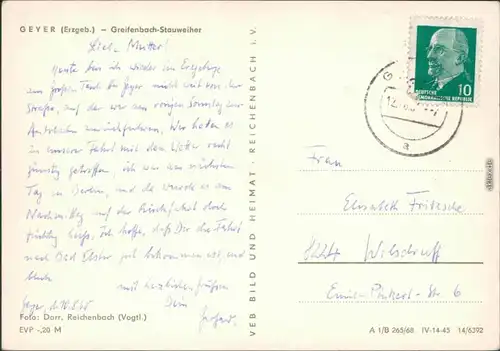 GEYER (Erzgeb.) — Greifenbach-Stauweiher
Liebe Mutter!
Heute bin ich wieder im Erzgebirge
am großen Teich bei Geyer nicht weit von der
Straße, auf der wir am vorigen Sonntag
zurückfuhren. Wir haben es
in unserer Fahrt mit dem Wetter recht
günstig getroffen, ich war am nächsten
Tag in Berlin, und da wurde es am
Nachmittag auf der Rückfahrt doch
heiß. Ich hoffe, daß Dir die Fahrt
nach Bad Elster gut bekommen ist, und
mit herzlichen Grüßen
Dein
Geyer, d.
Foto: Darr, Reichenbach (Vogtl.)
EVP -,20 M
VEB BILD UND HEIMAT · REICHENBACH i. V.
10
DEUTSCHE
DEMOKRATISCHE REPUBLIK
a
Frau
Elisabeth Fritzsche
8224 Wilsdruff
Str. 6
A 1/B 265/68 IV-14-45 14/6392